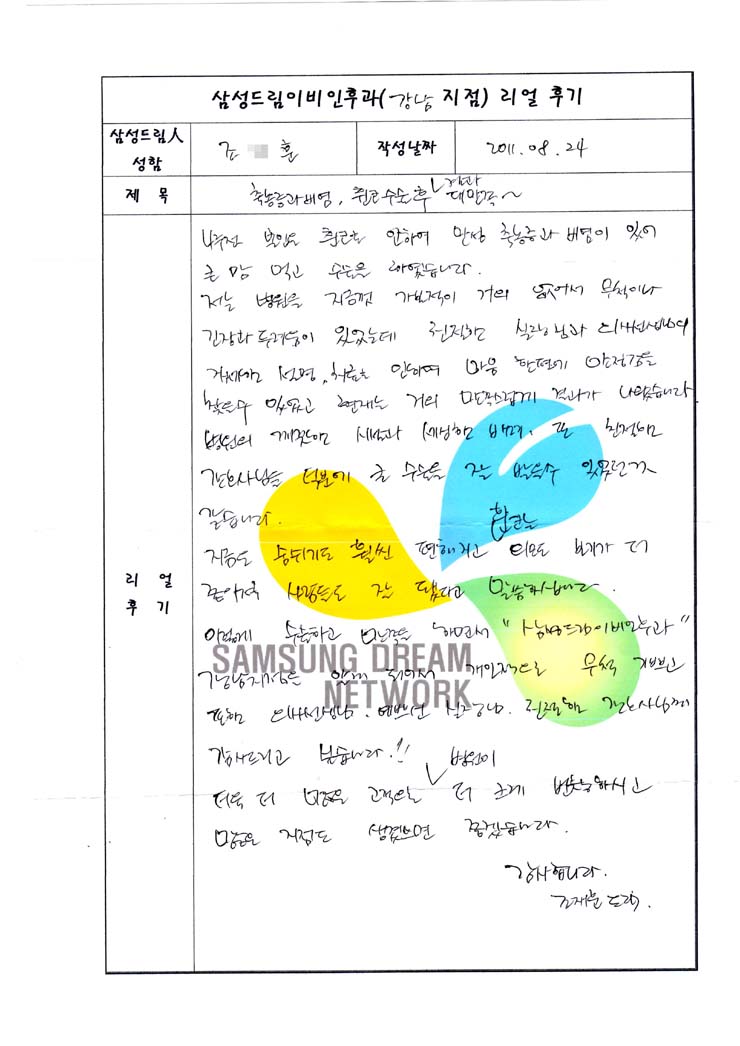 삼성드림이비인후과(강남 지점) 리얼 후기
삼성드림人
성함
조 훈
작성날짜
2011.08.24
제 목
축농증과 비염, 휜코수술 후 결과 대만족~
리 얼
후 기
휜코로 인하여 만성 축농증과 비염이 있어
큰 맘 먹고 수술을 하였습니다.
저는 병원을 지금껏 가본적이 거의 없어서 무척이나
긴장과 두려움이 있었는데 친절한 실장님과 의사선생님의
자세한 설명, 치료로 인하여 마음 한편에 안정감을
찾을수 있었고 현재는 거의 만족스럽게 결과가 나왔습니다
병원의 깨끗한 시설과 세심한 배려, 또 친절한
간호사님들 덕분에 큰 수술을 잘 받을수 있었던것
같습니다.
지금은 숨쉬기도 훨씬 편해지고 휜코는 외모도 보기가 더
좋아져 사람들도 잘 됐다고 말씀하십니다.
이렇게 수술하고 만족을 하면서 "삼성드림이비인후과"
강남지점을 알게 되어서 개인적으로 무척 기쁘고
또한 의사선생님, 예쁘신 실장님, 친절한 간호사님께
감사드리고 싶습니다.!!
더욱 더 많은 고객으로 병원이 더 크게 번창하시고
많은 지점도 생겼으면 좋겠습니다.
감사합니다.
조재훈 드림.
SAMSUNG DREAM
NETWORK